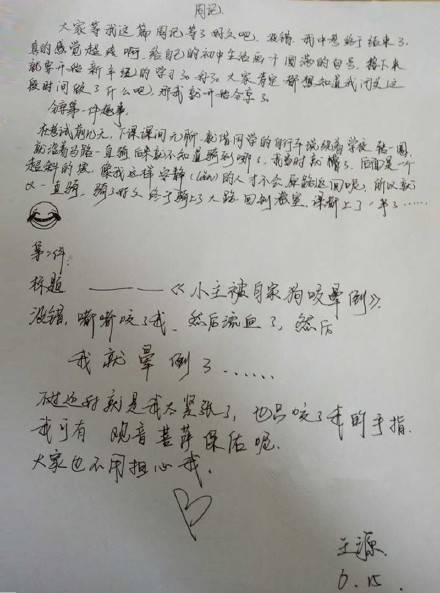 周记
大家等我这篇周记等了好久吧,没错,我中考终于结束了.
真的感觉超爽啊,给自己的初中生活画个圆满的句号,接下来
就要开始新年级的学习了.好了,大家肯定都想知道我闭关这
段时间做了什么吧,那我就开始分享了
分享第一件趣事.
在考试前几天,下课课间无聊,就借同学的自行车说绕着学校骑一圈,
就沿着马路一直骑,后来就不知道骑到哪了,我当时就懵了,后面是一个
超斜的坡,像我这样安静(lǎn)的人才不会原路返回呢,所以就
一直骑,骑了好久终于骑上了大路回到教室,课都上了一半了……
第二件.
标题————《小主被自家狗咬晕倒》
没错,嘟嘟咬了我,然后流血了,然后
我就晕倒了……
不过还好就是我太紧张了,也只咬了我的手指.
我可有观音菩萨保佑呢.
大家也不用担心我.
王源.
6.15.